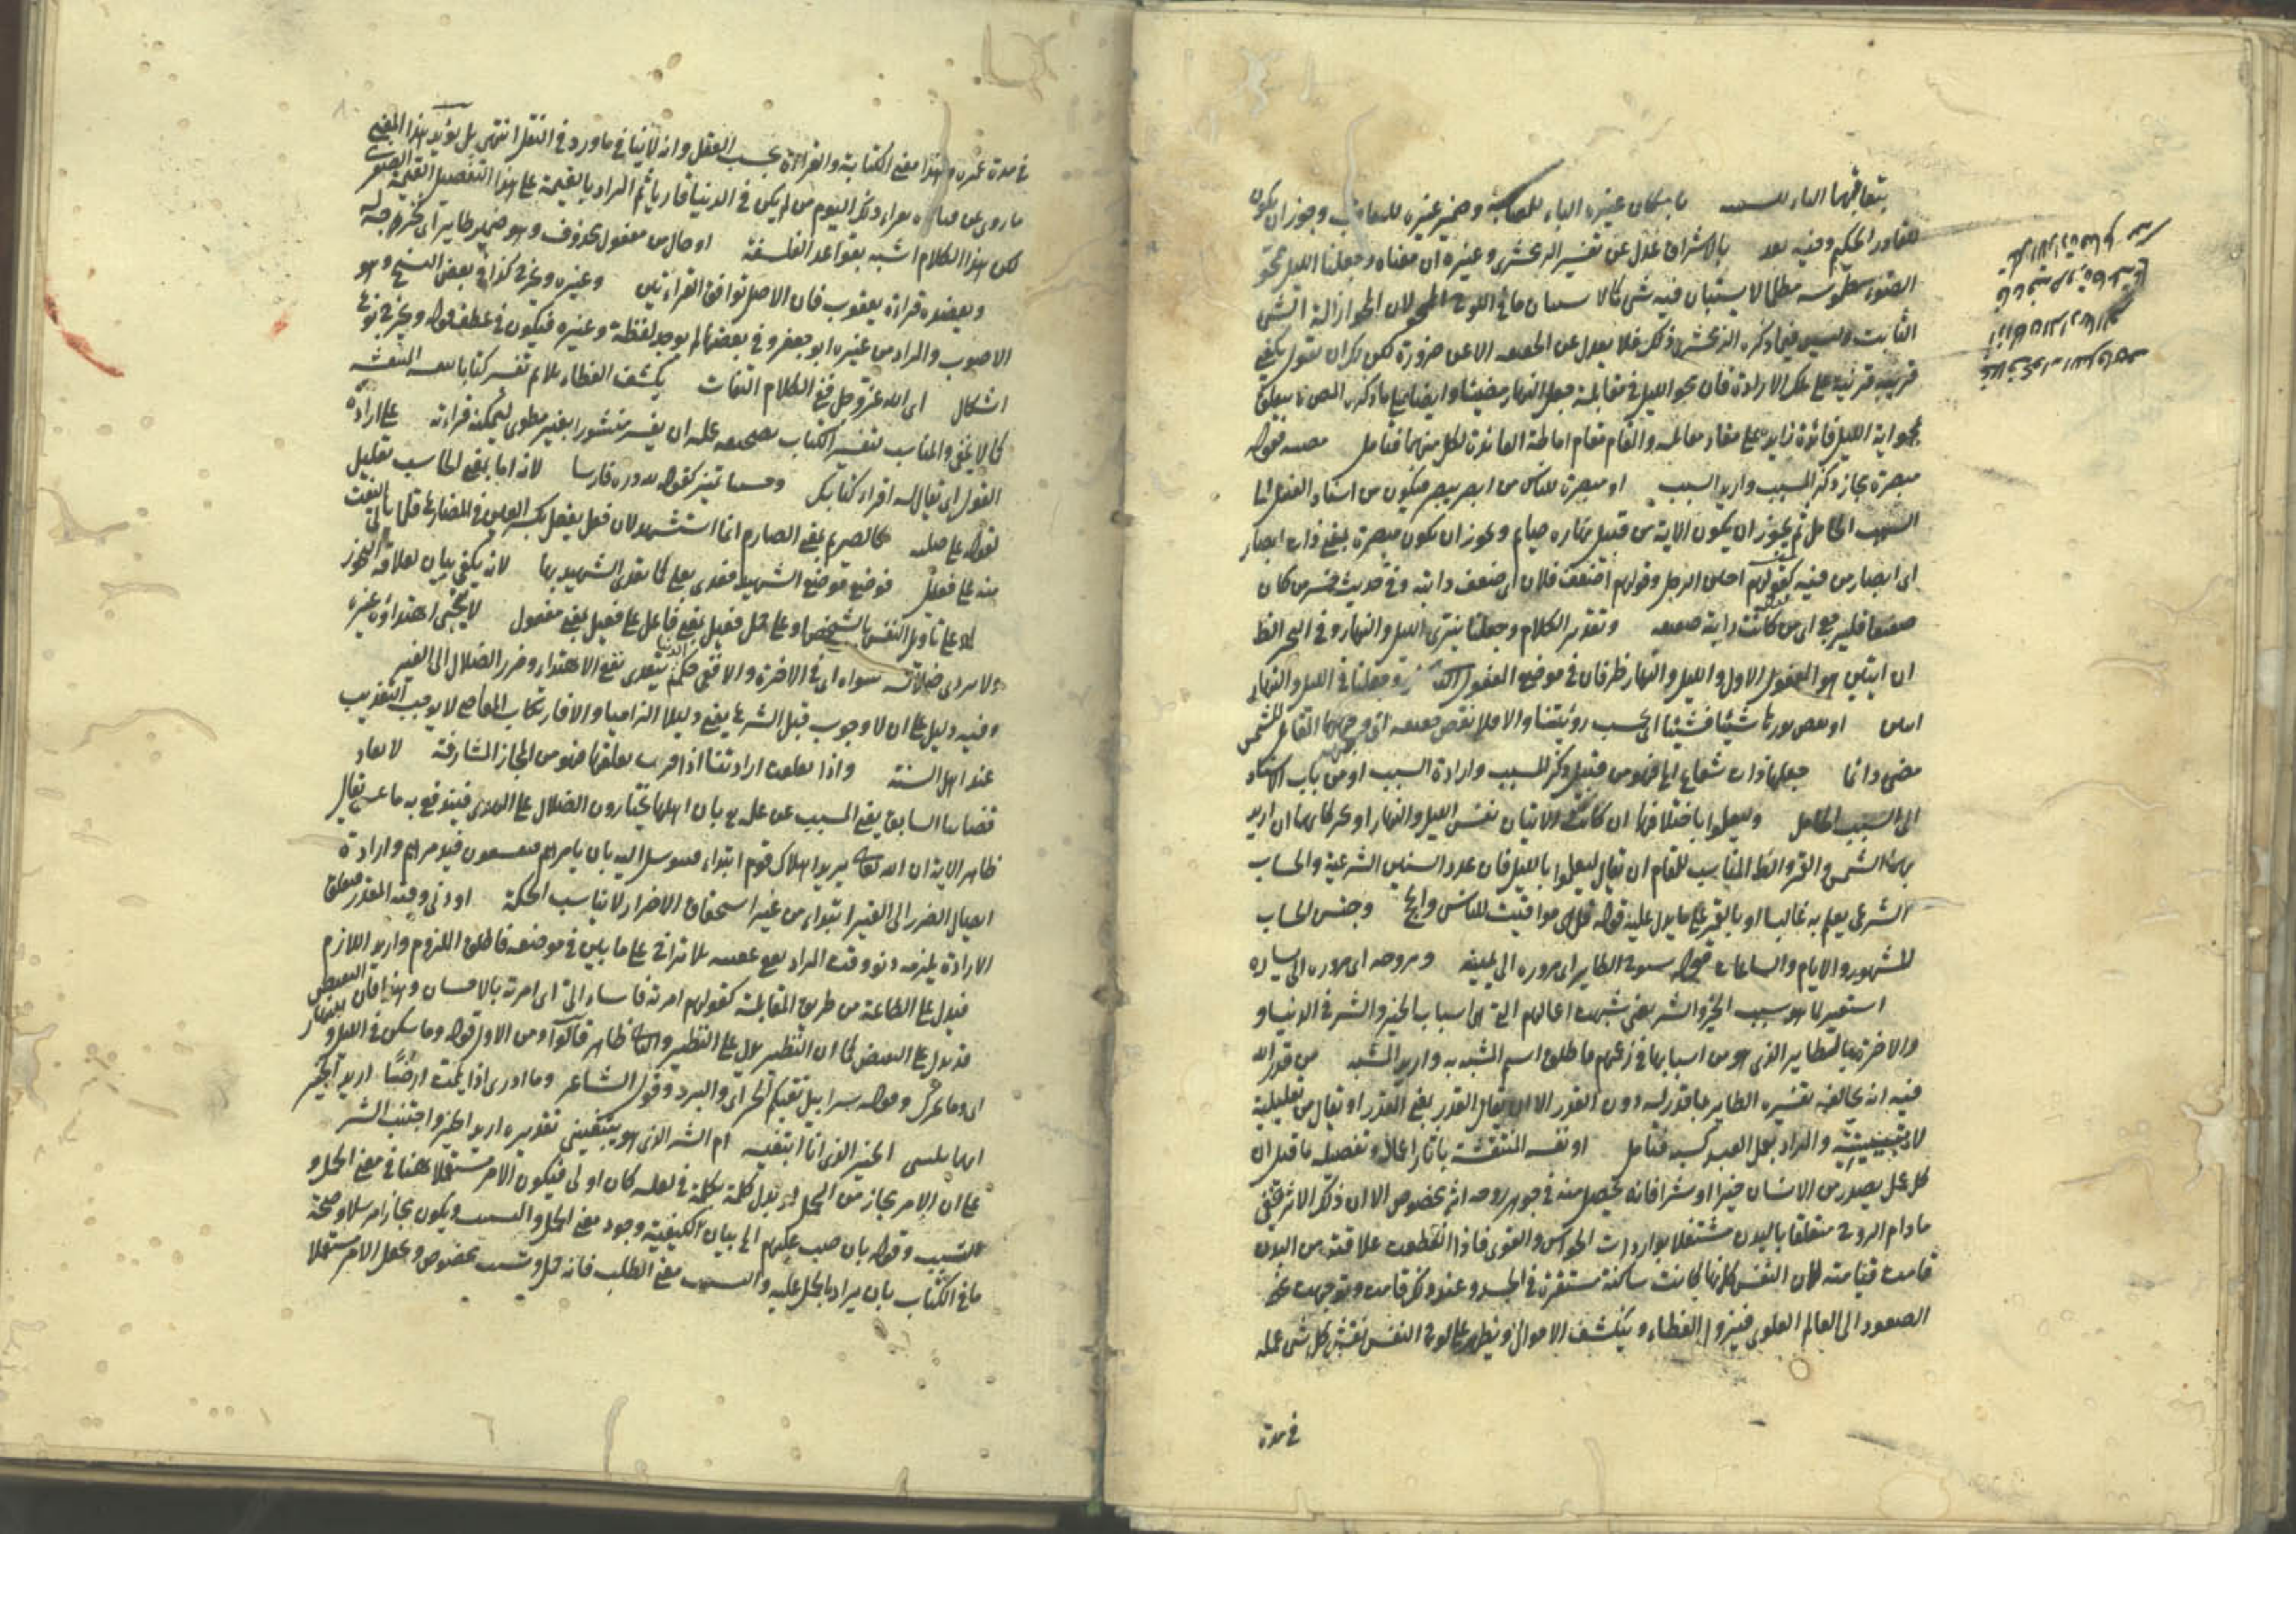 يتعاقبهما الباء للسببية با مكان غيره الباء للمصاحبة وضمير غيره للمعاقب وجوز ان يكون
للقادر الحكيم وفيه بعد بالاشراق عدل عن تفسير الزمخشري وغيره ان معناه وجعلنا الليل ممحو
الضوء مطموسه مظلما لا يستبان فيه شي كما لا يستبان ما في اللوح الممحو لان المحو ازالة الشي
الثابت وليس فيما ذكره الزمخشري ذلك فلا يعدل عن الحقيقة الا عن ضرورة لكن لك ان تقول يكفي
قرينة على تلك الارادة فان محو الليل في مقابلة جعل النهار مضيئا وايضا على ما ذكره المص ما يتعلق
بمحو اية الليل فائدة زايدة على مقابله والمقام مقام اماطة الفائدة لكل منهما فتامل قوله
مبصرة مجاز ذكر المسبب واريد السبب او مبصرة للناس من ابصر يبصر فيكون من اسناد الفعل الى
السبب الحامل ثم يجوز ان يكون الاية من قبيل نهاره صيام ويجوز ان يكون مبصرة بمعنى ذات ابصار
اى ابصار من فيه كقولهم اجبن الرجل وقولهم اضعف فلان اى ضعف دابته وفي حديث خيبر من كان
مضعفا فليرجع اى من كانت دابته ضعيفة وتقدير الكلام وجعلنا نيرى الليل والنهار وفي البحر الظ
ان ايتين هو المفعول الاول والليل والنهار ظرفان في موضع المفعول الثاني وجعلنا في الليل والنهار
ايتين او نقص نورها شيئا فشيئا اى بحسب رؤيتنا والا فلا نقص القمر للشمس
مضى دائما جعلها ذات شعاع الخ فهو من قبيل ذكر المسبب وارادة السبب او من باب الاسناد
الى السبب الحامل وليعلموا باختلافهما ان كانت الايتان نفس الليل والنهار او بحركاتهما ان اريد
بهما الشمس والقمر والظ المناسب للمقام ان يقال ليعلموا بالليل فان عدد السنين الشرعية والحساب
الشرعى يعلم به غالبا او بالقمر على ما يدل عليه قوله قل هى مواقيت للناس والحج وجنس الحساب
للشهور والايام والساعات قوله سنوح الطاير اى مروره الى يمينه وبروحه اى مروره الى يساره
استعير لما هو سبب الخير والشر يعنى شبهت اعمالهم التى هى اسباب الخير والشر في الدنيا و
والاخرة بالطاير الذى هو من اسبابها في زعمهم فاطلق اسم المشبه به واريد المشبه من قدر الله
فيه انه يخالفه تفسيره الطاير بما قدر له دون القدر الا ان يقال القدر بمعنى المقدر او يقال من تعليلية
لا تبعيضية والمراد بعمل العبد كسبه فتامل او نفسه المنتقشة باثار اعماله وتفصيله ما قيل ان
كل عمل يصدر من الانسان خيرا او شرا فانه يحصل منه في جوهر روحه اثر مخصوص الا ان ذلك الاثر يخفى
مادام الروح متعلقا بالبدن مشتغلا بواردات الحواس والقوى فاذا انقطعت علاقته من البدن
قامت قيامته لان النفس كانها كانت ساكنة مستقرة في الجسد وعند ذلك قامت وتوجهت نحو
الصعود الى العالم العلوى فيزول الغطاء وينكشف الاحوال ويظهر على لوح النفس نقش كل شى عمله
في مدة
في مدة عمره وهذا معنى الكتابة والقراءة بحسب العقل وانه لا ينافي ما ورد في النقل انتهى بل يؤيد هذا المعنى
ما روى عن قتادة يقرأ ذلك اليوم من لم يكن في الدنيا قاريا ثم المراد بالقيمة على هذا التفصيل القيمة الصغرى
لكن هذا الكلام اشبه بقواعد الفلسفة او حال من مفعول محذوف وهو ضمير طاير اى نخرجه له
ويعضده قراءة يعقوب فان الاصل توافق القراءتين وغيره ويخرج كذا في بعض النسخ وهو
الاصوب والمراد من غيره ابو جعفر وفي بعضها لم يوجد لفظة وغيره فيكون في عطف قوله ويخرج نوع
اشكال اى الله عز وجل ففى الكلام التفات يكشف الغطاء يلائم تفسير كتابا بنفسه المنتقشة
كما لا يخفى والمناسب لتفسير الكتاب بصحيفة عمله ان يفسر منشورا بغير مطوى ليمكنه قراءته على ارادة
القول اى يقال له اقرأ كتابك وحسيبا تمييز كقوله لله دره فارسا لانه اما بمعنى الحاسب تعليل
لقوله على صلته كالصريم بمعنى الصارم انما استشهد لان فعل يفعل بكسر العين في المضارع قلما ياتى النعت
منه على فعيل فوضع موضع الشهيد فعدى بعلى كما يعدى الشهيد بها لانه يكفى بيان لعلاقة التجوز
او على تاويل النفس بالشخص او على حمل فعيل بمعنى فاعل على فعيل بمعنى مفعول لا ينجى اهتداؤه غيره
ولا يردى ضلاله سواه اى في الاخرة والا ففى حكم الدنيا يتعدى نفع الاهتداء وضرر الضلال الى الغير
وفيه دليل على ان لا وجوب قبل الشرع يعنى دليلا الزاميا والا فارتكاب المعاصى لا يوجب التعذيب
عند اهل السنة واذا تعلقت ارادتنا اذا قرب تعلقها فهو من المجاز المشارفة لانفاذ
قضائنا السابق يعنى المسبب عن علمه بان اهلها يختارون الضلال على الهدى فيندفع به ما عسى يقال
ظاهر الاية ان الله تعالى يريد اهلاك قوم ابتداء فيتوسل اليه بان يامرهم فيفسقون فيدمرهم وارادة
ايصال الضرر الى الغير ابتداء من غير استحقاق الاضرار لا يناسب الحكمة او دنى وقته المقدر فتعلق
الارادة يلزمه دنو وقت المراد يقع عقيبه بلا تراخى على ما بين في موضعه فاطلق الملزوم واريد اللازم
فيدل على الطاعة من طريق المقابلة كقولهم امرته فاساء الى اى امرته بالاحسان وهذا فان النقيض
قد يدل على النقيض كما ان النظير يدل على النظير والثانى ظاهر قالوا ومن الاول قوله وما سكن في الليل والنهار
اى وما تحرك وقوله سرابيل تقيكم الحر اى والبرد وقول الشاعر وما ادرى اذا يممت ارضا اريد الخير
ايهما يلينى الخير الذى انا ابتغيه ام الشر الذى هو يبتغينى تقديره اريد الخير واجتنب الشر
على ان الامر مجاز من الحمل لو بدل كلمة بكلمة في لعله كان اولى فيكون الامر مستعملا ههنا في معنى الحمل و
التسبب وقوله بان صب عليهم الخ بيان لكيفية وجود معنى الحمل والتسبب ويكون مجازا مرسلا وصحة
ما في الكتاب بان يراد بالحمل عليه والتسبب معنى الطلب فانه حمل وتسبب مخصوص وجعل الامر مستعملا